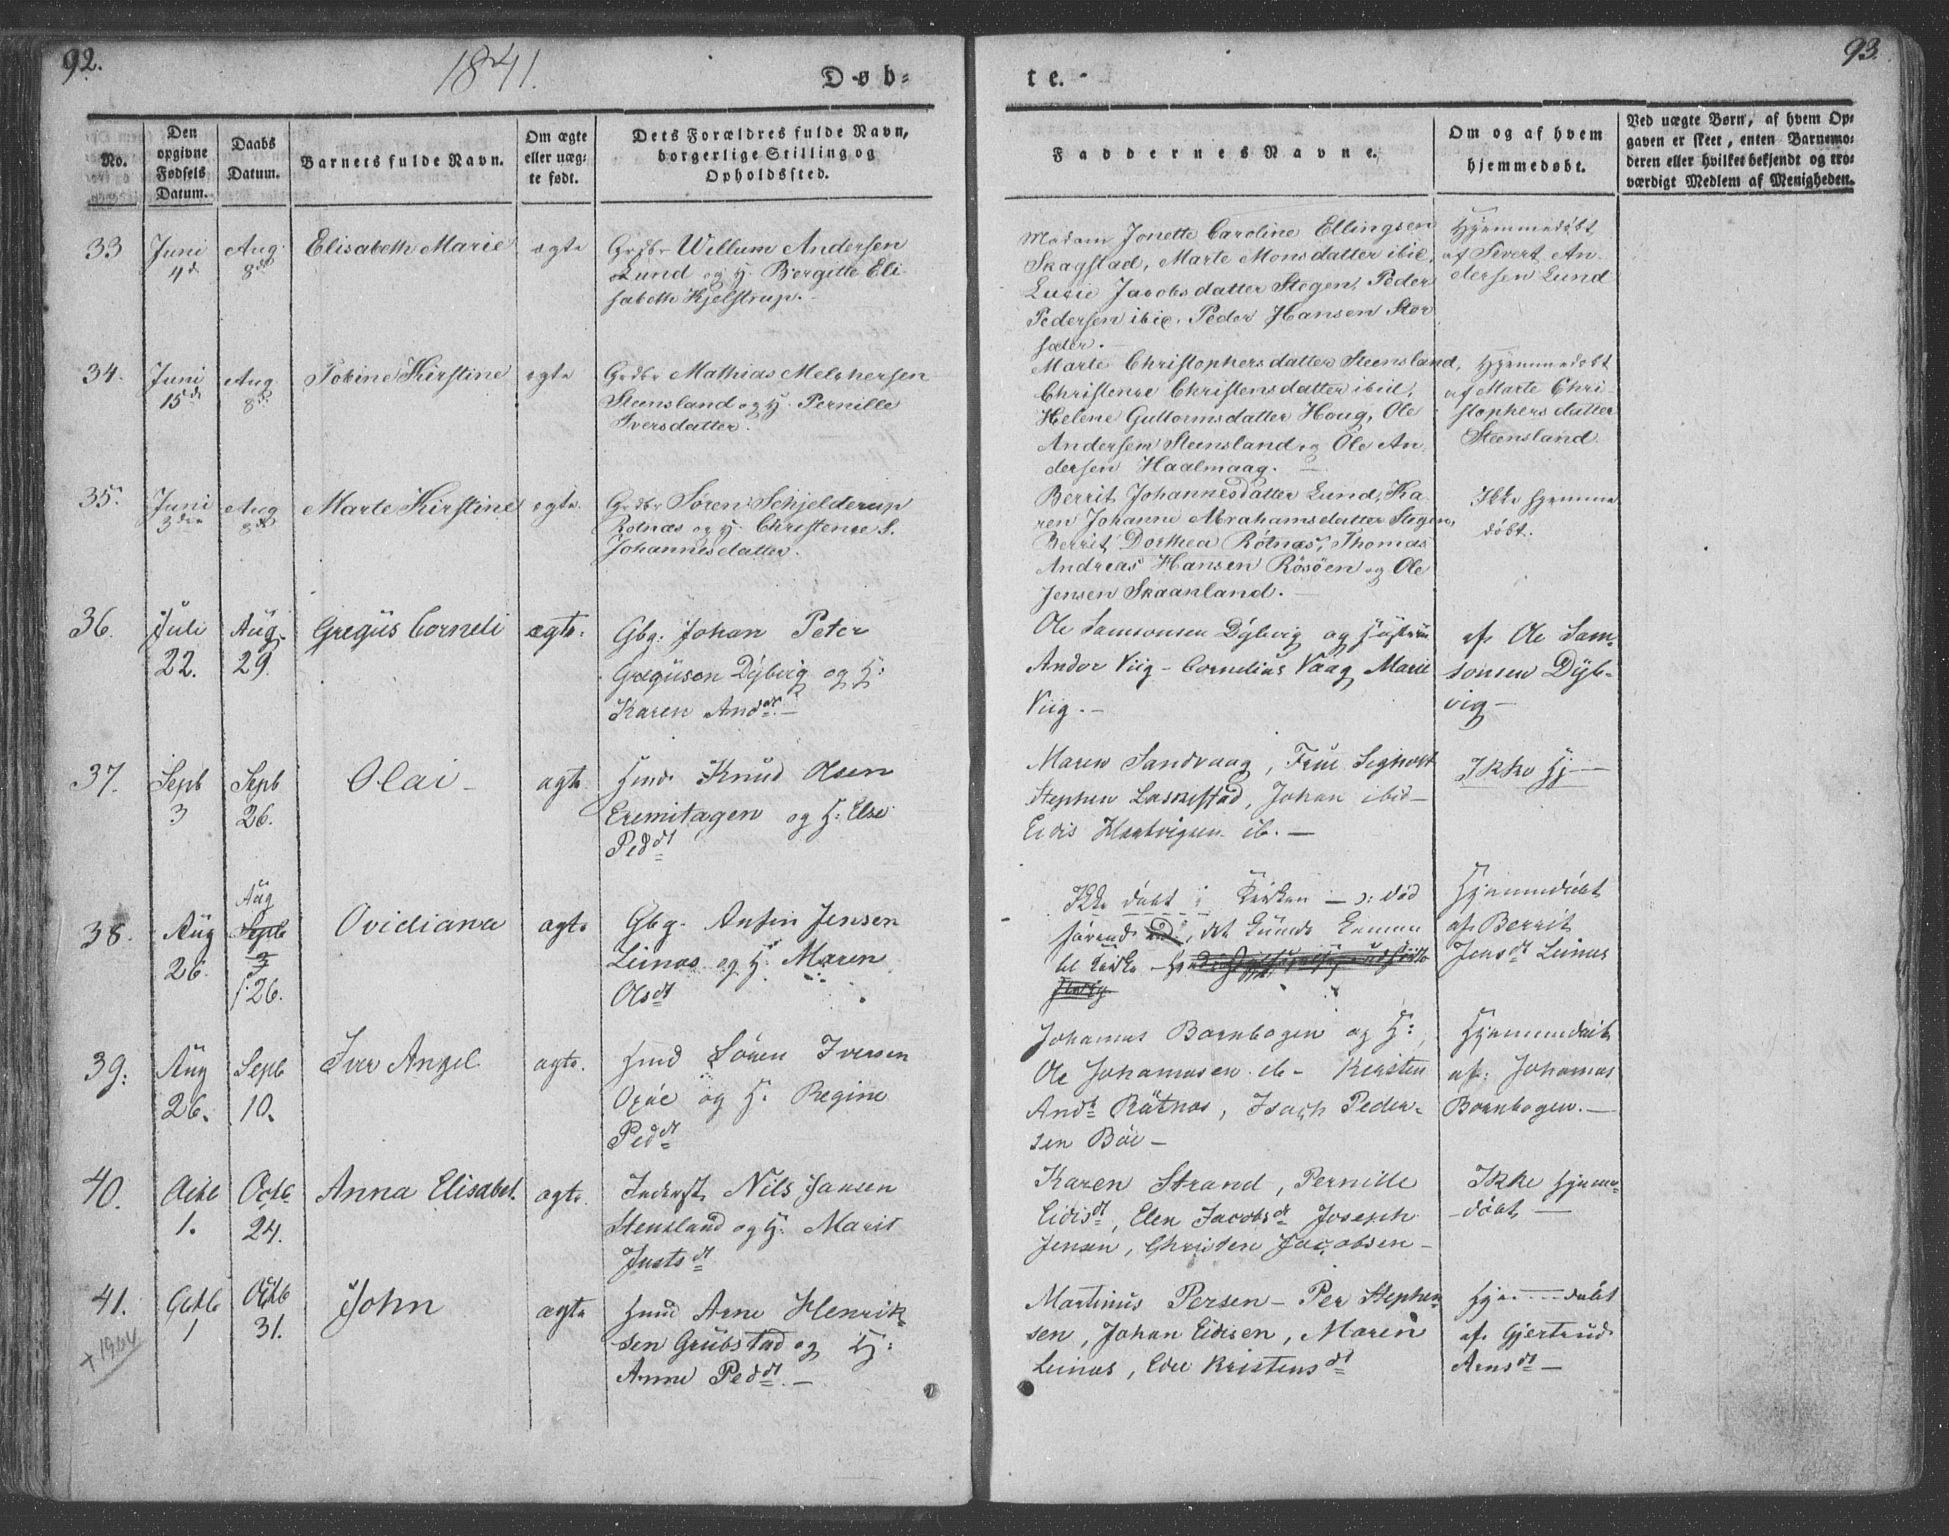 92.
1841.
Døb-
te.
93.
No.
Den opgivne Fødsels Datum.
Daabs Datum.
Barnets fulde Navn.
Om ægte eller uægte født.
Dets Forældres fulde Navn, borgerlige Stilling og Opholdssted.
Faddernes Navne.
Om og af hvem hjemmedøbt.
Ved uægte Børn, af hvem Opgaven er skeet, enten Barnemoderen eller hvilket bekjendt og troværdigt Medlem af Menigheden.
33
Juni
4d
Aug.
8de
Elisabeth Marie
ægte
Grdbr Willum Andersen
Lund og H. Bergitte Eli
sabeth Kjelstrup.
Madam Jonette Caroline Ellingsen
Skagstad, Marte Monsdatter ibid,
Lucie Jacobsdatter Stegen, Peder
Pedersen ibid. Peder Hansen Stor
sæter.
Hjemmedøbt
af Sivert An
dersen Lund
34.
Juni
15de
Aug.
8de
Tobine Kirstine
egte
Grdbr Mathias Melchersen
Steensland og H. Pernille
Iversdatter.
Marte Christophersdatter Steensland,
Christense Christensdatter ibid,
Helene Guttormsdatter Houg, Ole
Andersen Steensland og Ole An
dersen Haalmaag.
Hjemmedøbt
af Marte Chri
stophersdatter
Steensland.
35.
Juni
3die
Aug
8de
Marte Kirstine
egte.
Grdbr Søren Schjelderup
Rotnæs og H. Christense S.
Johannesdatter.
Berrit Johannesdatter Lund, Ka
ren Johanne Abrahamsdatter Stegen,
Berrit Dorthea Rotnæs, Thomas
Andreas Hansen Røsøen og Ole
Jensen Skaanland.
Ikke hjemme
døbt.
36.
Juli
22.
Aug.
29.
Gregüs Corneli
ægte.
Gbg: Johan Peter
Gregüsen Dÿbvig og H:
Karen Anddt.
Ole Samsonsen Dÿbvig og Hustru
Andor Viig - Cornelius Vaag Marie
Viig.
af Ole Sam-
sonsen Dÿb-
vig
37.
Septb
3
Septb
26.
Olai
ægte
Hmd Knud Olsen
Eremitagen og H: Else
Peddt
Maren Sandvaag, Frue Sigholt
Stephen Laskestad, Johan ibid
Eidis Hartvigsen ib.
Ikke Hj
38.
Aug
26.
Aug
Septb
3
26.
Ovidiana
ægte
Gbg. Anfin Jensen
Leinæs og H. Maren
Olsdt
Ikke døbt i Kirken - ɔ: død
førend det kunde komme
til Kirke
Hjemmedøbt
af Berrit
Jensdt Leinæs
39.
Aug
26.
Septb
10.
Iver Angel
ægte.
Hmd Sören Iversen
og H. Regine
Peddt
Johannes Bornbogen og H:
Ole Johannesen ib - Kirsten
Andt Rötnæs, Isach Peder-
sen Böe
Hjemmedøbt
af: Johannes
Bornbogen.
40.
Octbr
1.
Octbr
24.
Anna Elisabet
ægte.
Inderst Nils Jansen
Stensland og H. Marit
Justsdt
Karen Strand, Pernille
Eidisdt, Elen Jacobsdt Joseph
Jensen, Christen Jacobsen
Ikke hjemme
døbt
41.
Octbr
1
Octbr
31.
John
ægte
Hmd Arne Henrik-
sen Grübstad og H:
Anne Peddt.
Martinus Persen - Per Stephen
sen, Johan Eidisen, Maren
Leinæs, Kristensdt
Hj døbt
af Gjertrud
Arnsdt
+1904